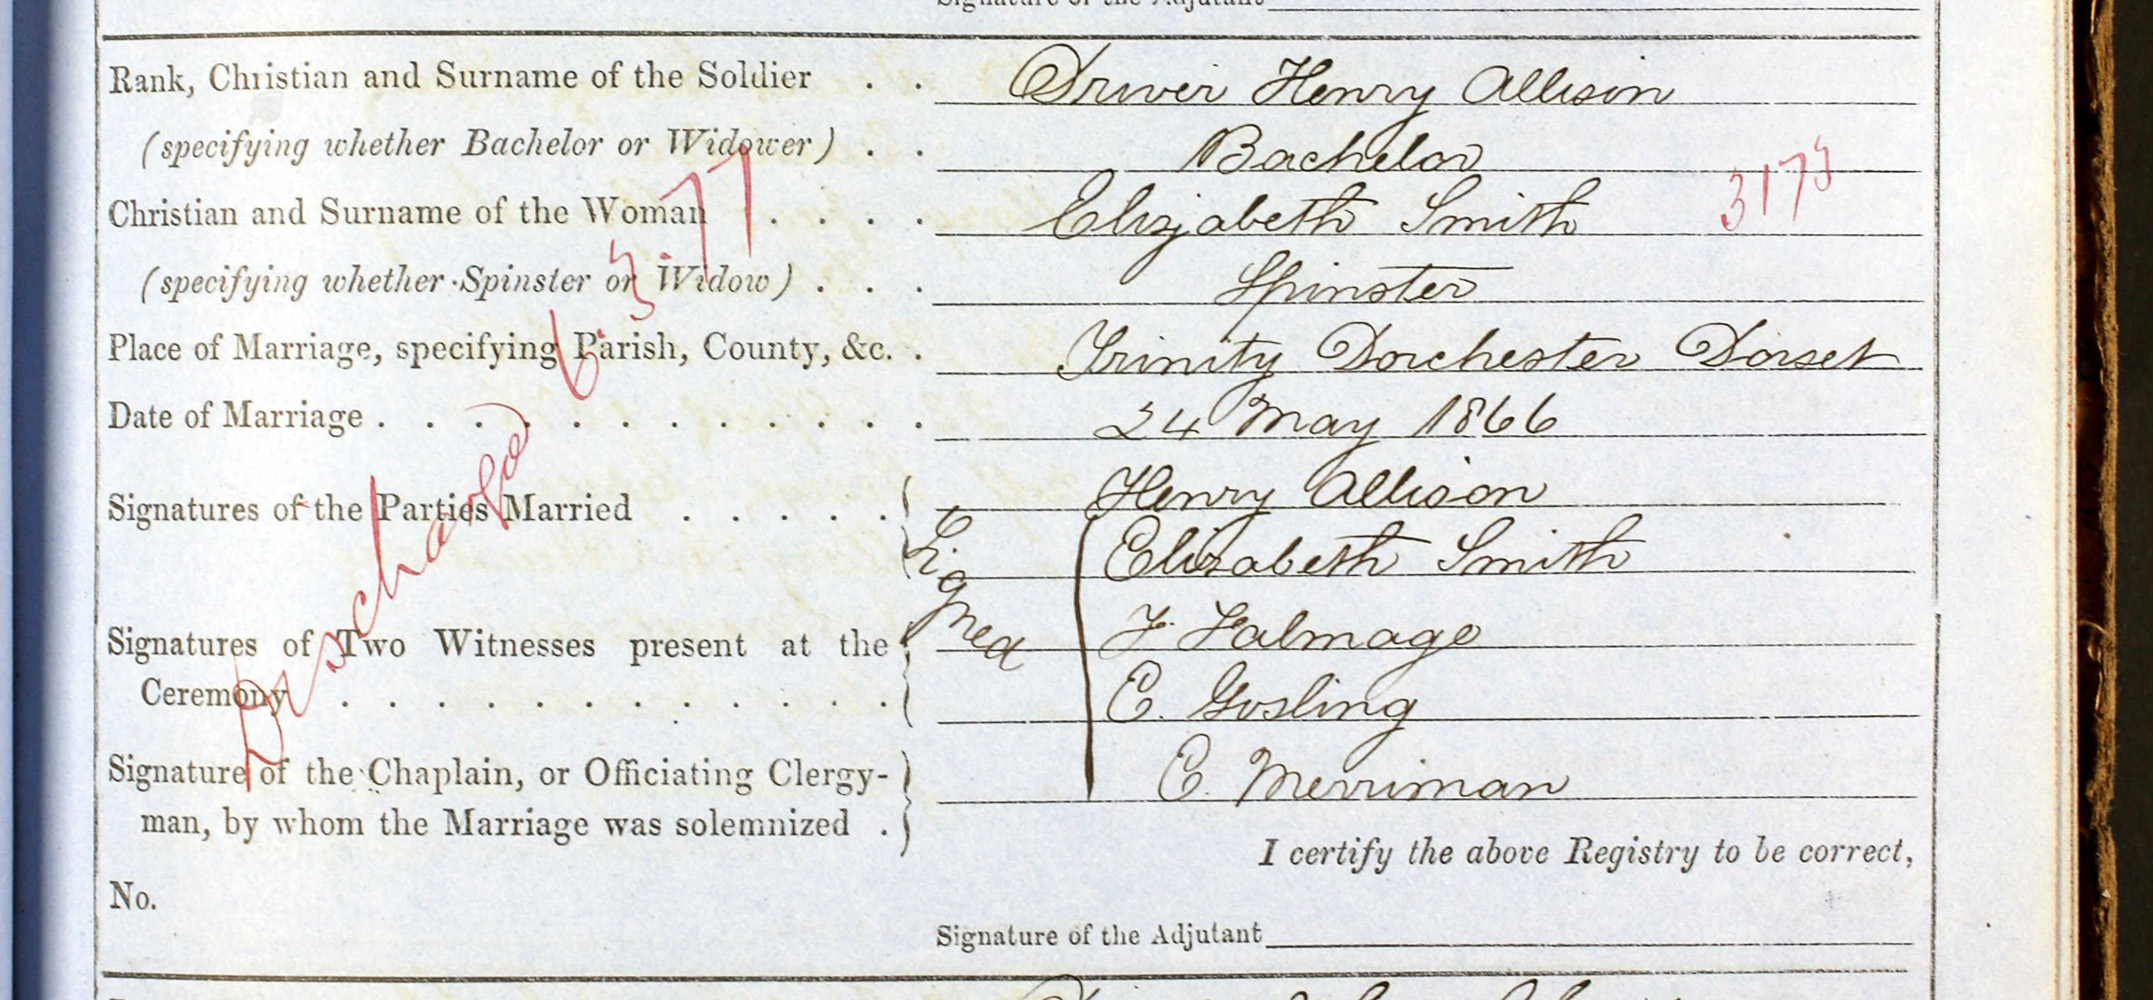 Signature of the Adjutant
Rank, Christian and Surname of the Soldier . . Driver Henry Allison
(specifying whether Bachelor or Widower) . . Bachelor
3173
Christian and Surname of the Woman . . . . Elizabeth Smith
(specifying whether Spinster or Widow) . . . Spinster
Place of Marriage, specifying Parish, County, &c. . Trinity Dorchester Dorset
Date of Marriage . . . . . . . . . . . . 24 May 1866
Signatures of the Parties Married . . . . . Henry Allison
Signed
Elizabeth Smith
Signatures of Two Witnesses present at the
Ceremony . . . . . . . . . . . .
F. Talmage
E. Gosling
Signature of the Chaplain, or Officiating Clergy- E. Merriman
man, by whom the Marriage was solemnized .
Discharged 6.3.77
I certify the above Registry to be correct,
No.
Signature of the Adjutant